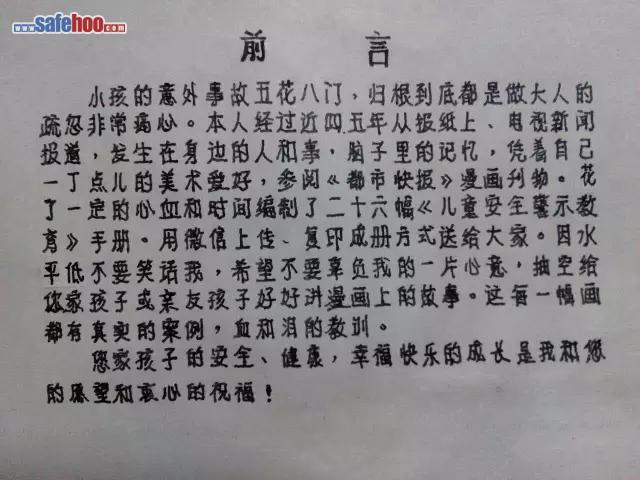 www.safehoo.com
前 言
小孩的意外事故五花八门，归根到底都是做大人的
疏忽非常痛心。本人经过近四五年从报纸上、电视新闻
报道，发生在身边的人和事，脑子里的记忆，凭着自己
一丁点儿的美术爱好，参阅《都市快报》漫画刊物。花
了一定的心血和时间编制了二十六幅《儿童安全警示教
育》手册。用微信上传、复印成册方式送给大家。因水
平低不要笑话我，希望不要辜负我的一片心意，抽空给
您家孩子或亲友孩子好好讲漫画上的故事。这每一幅画
都有真实的案例，血和泪的教训。
您家孩子的安全、健康，幸福快乐的成长是我和您
的愿望和衷心的祝福！